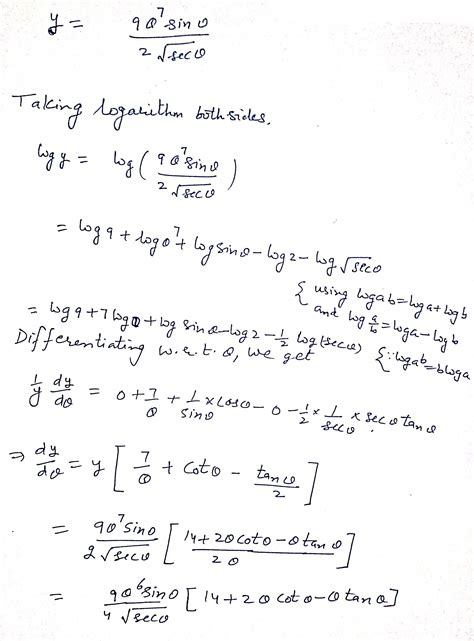 y = 9θ⁷ sinθ / 2√secθ
Taking logarithm both sides.
log y = log ( 9θ⁷ sinθ / 2√secθ )
= log 9 + log θ⁷ + log sinθ - log 2 - log √secθ
{ using log ab = log a + log b
and log a/b = log a - log b
= log 9 + 7 log θ + log sinθ - log 2 - 1/2 log (secθ) {∵ log aᵇ = b log a
Differentiating w.r.t. θ, we get
1/y dy/dθ = 0 + 7/θ + 1/sinθ × cosθ - 0 - 1/2 × 1/secθ × secθ tanθ
⇒ dy/dθ = y [ 7/θ + cotθ - tanθ/2 ]
= 9θ⁷ sinθ / 2√secθ [ 14 + 2θ cotθ - θ tanθ / 2θ ]
= 9θ⁶ sinθ / 4√secθ [ 14 + 2θ cotθ - θ tanθ ]